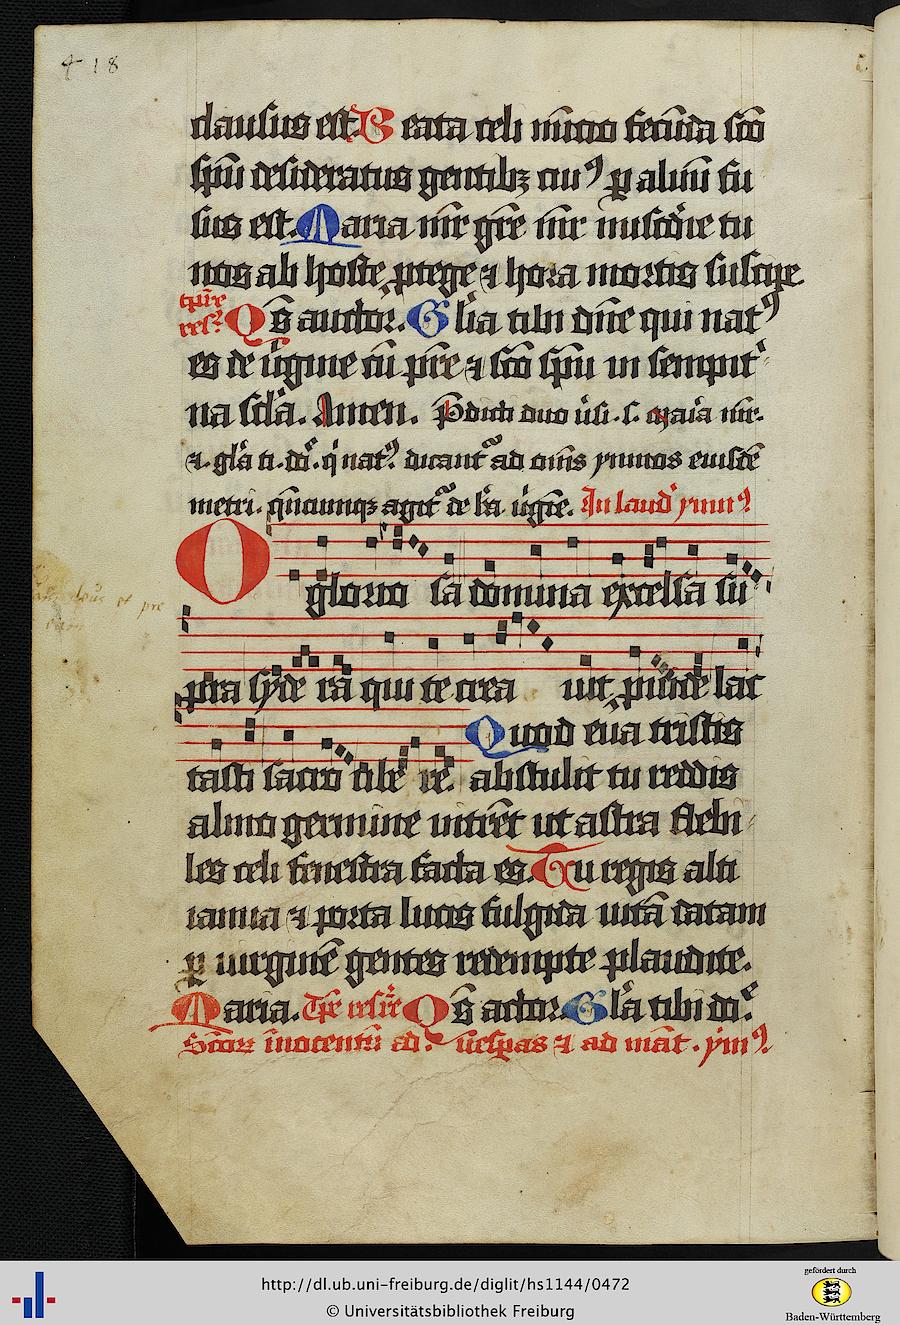 418
clausus est. Beata celi nũcio fecũda sc̃o
sp̃u desideratus gentibꝫ cuiꝰ ꝑ aluũ fu
sus est. Maria mr̃ gr̃e mr̃ mis̃cdie tu
nos ab hoste ꝓtege ⁊ hora mortis suscipe.
tp̃re
res̃r
Qs̃ auctor. Gl̃ia tibi dñe qui natꝰ
es de ũgine cũ pr̃e ⁊ sc̃o sp̃u in sempit̾
na scl̃a. Amen. P̃dicti duo ũsi .s. Maria mr̃.
⁊. gl̃a ti. do᷑. q̾ natꝰ. dicant᷑ ad om̃s ymnos eiusdẽ
metri. q̃ncumqꝫ agit᷑ de b̃a ũgĩe. In laud̾ ymnꝰ
O gloriosa domina excelsa su
pra sydera qui te creauit ꝓuide lac
tasti sacro ubere. Quod eua tristis
abstulit tu reddis
almo germine intrẽt ut astra flebi
les celi fenestra facta es. Tu regis alti
ianua ⁊ porta lucis fulgida uitã datam
ꝑ uirginẽ gentes redempte plaudite.
Maria. Tp̃e res̃r̃e Qs̃ actor. Gl̃a tibi do᷑.
Sc̃oꝝ ĩnocentũ ad ũesp̃as ⁊ ad mat̃. ymꝰ.
http://dl.ub.uni-freiburg.de/diglit/hs1144/0472
© Universitätsbibliothek Freiburg
gefördert durch
Baden-Württemberg